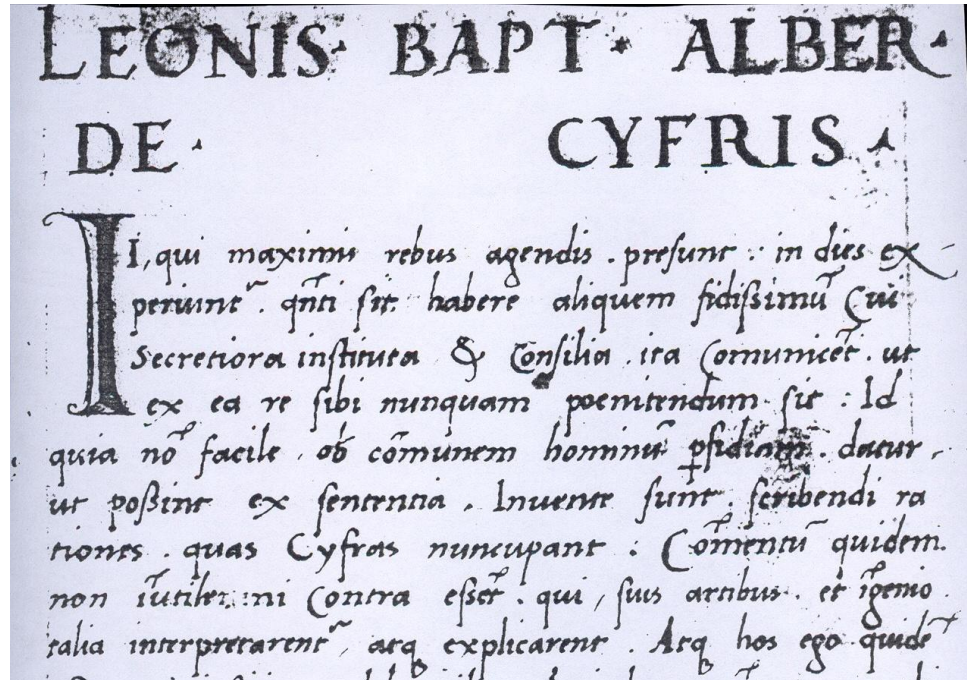 LEONIS· BAPT· ALBER·
DE· CYFRIS·
II, qui maximis rebus agendis . presunt : in dies ex
periunt᷑ . qñti sit . habere aliquem fidissimũ Cui
Secretiora instituta & Consilia . ita Comunicẽt . ut
ex ea re sibi nunquam poenitendum sit : Id
quia nõ facile . ob cõmunem hominũ ꝑfidiam . datur .
ut poßint ex sententia . Invente sunt . scribendi ra
tiones . quas Cyfras nuncupant : Cõmentũ quidem.
non ĩutile: ni Contra eßẽt . qui , suis artibus . et ĩgenio .
talia interpretarent᷑ , atq explicarent . Atq hos ego quidẽ